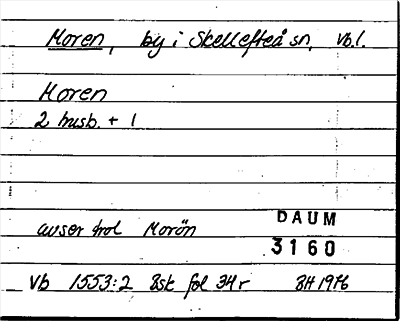 Moren, by i Skellefteå sn, vb.l.
Moren
2 husb. + 1
avser trol Morön
DAUM
3160
Vb 1553:2 Bsk fol 34r BH 1976